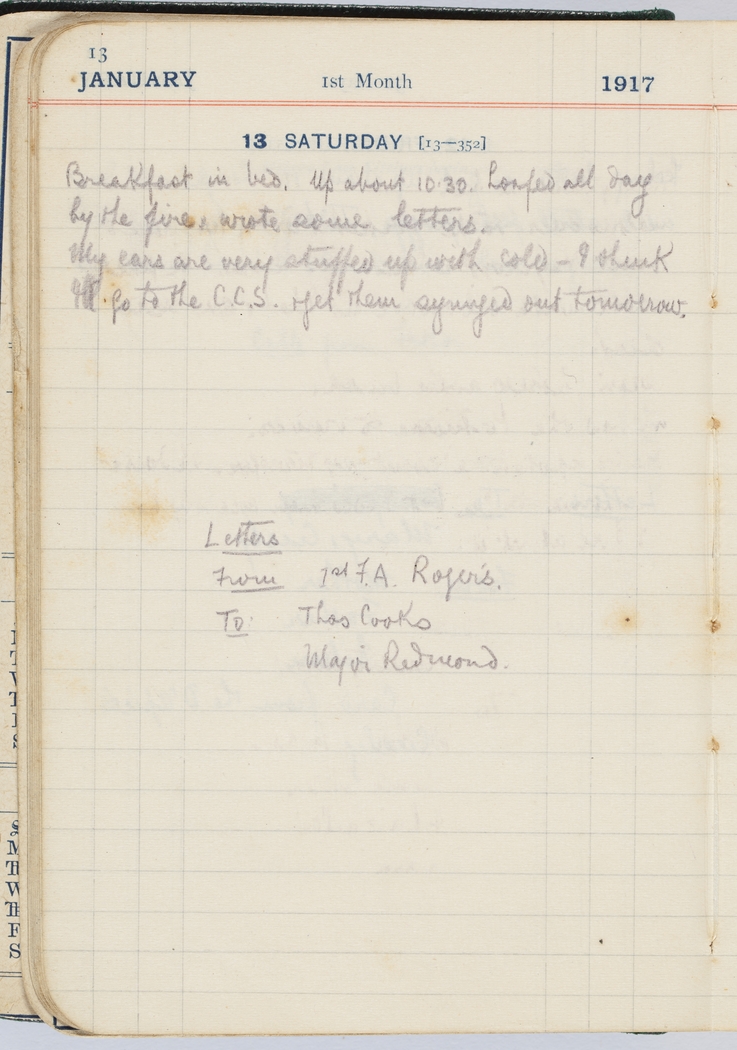 13
JANUARY 1st Month 1917
13 SATURDAY [13—352]
Breakfast in bed. Up about 10.30. Loafed all day
by the fire & wrote some letters.
My ears are very stuffed up with cold – I think
I'll go to the C.C.S. & get them syringed out tomorrow.
Letters
From 1st F.A. Rogers.
To: Thos Cooks
Major Redmond.
S
M
Th
W
Th
F
S